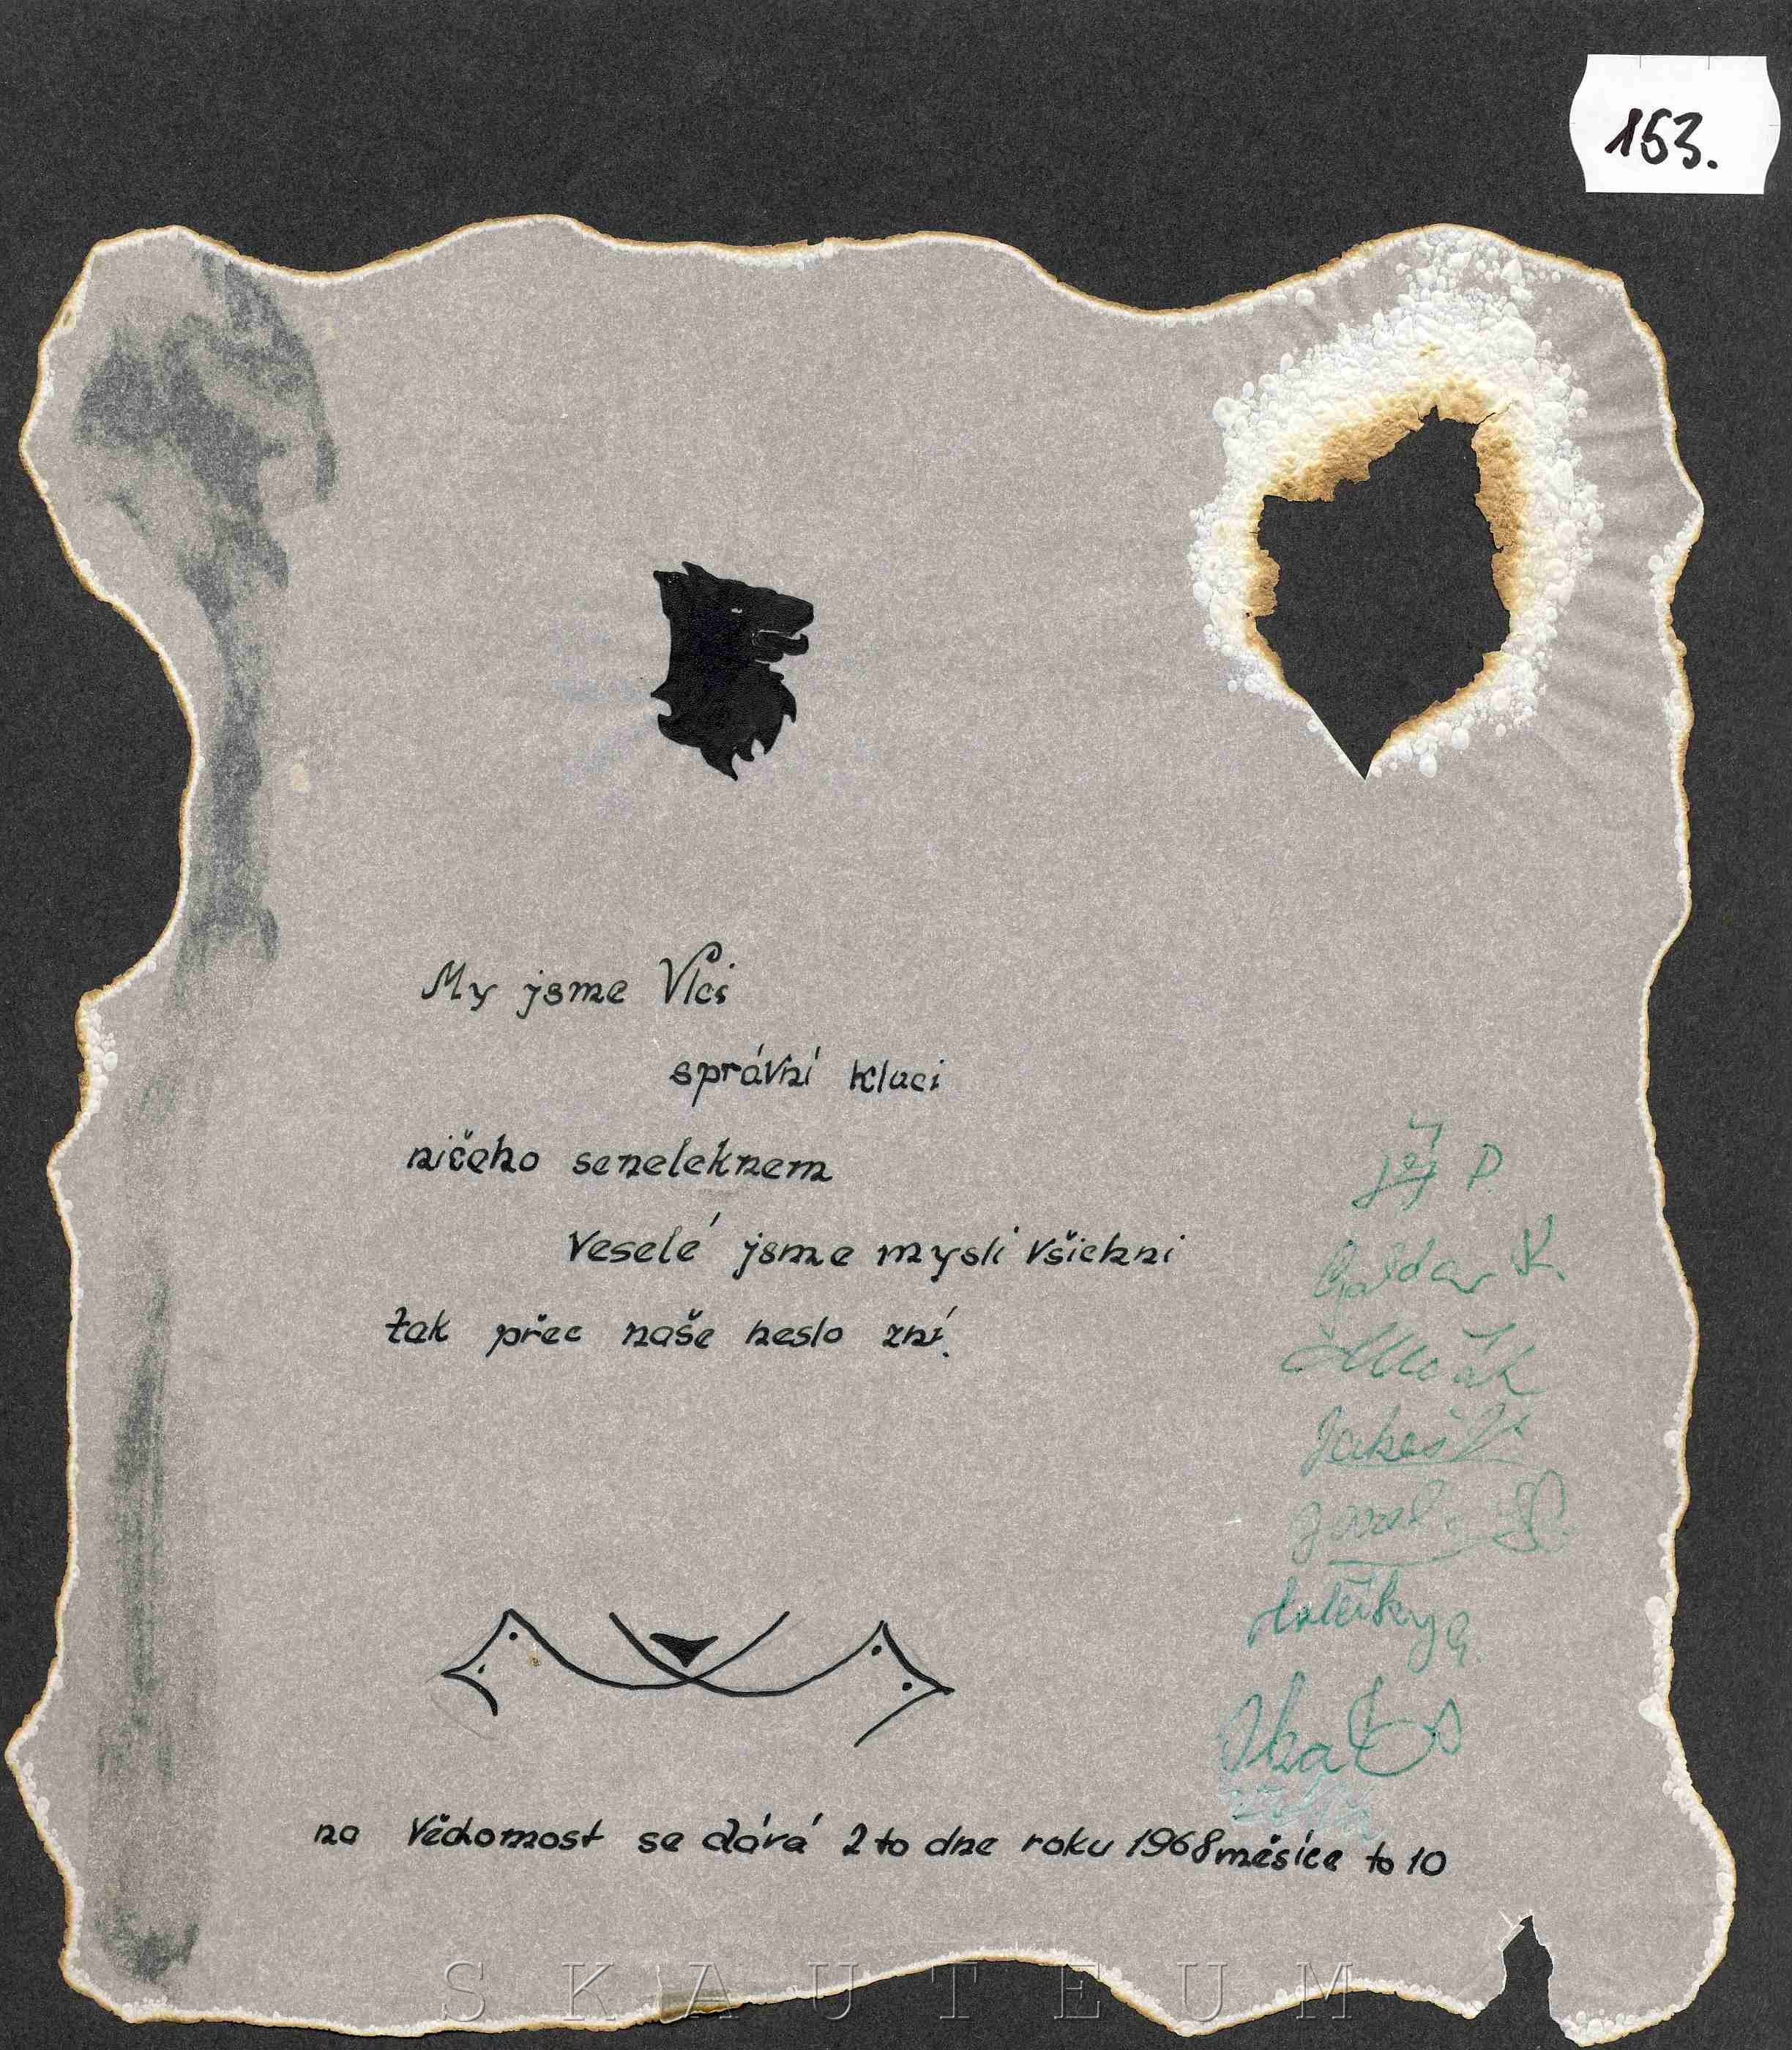 153.
My jsme Vlci
správní kluci
ničeho seneleknem
Veselé jsme mysli všichni
tak přec naše heslo zní.
P.
K.
Jakeš
na Vědomost se dává 2 to dne roku 1968 měsíce to 10
SKAUTEUM